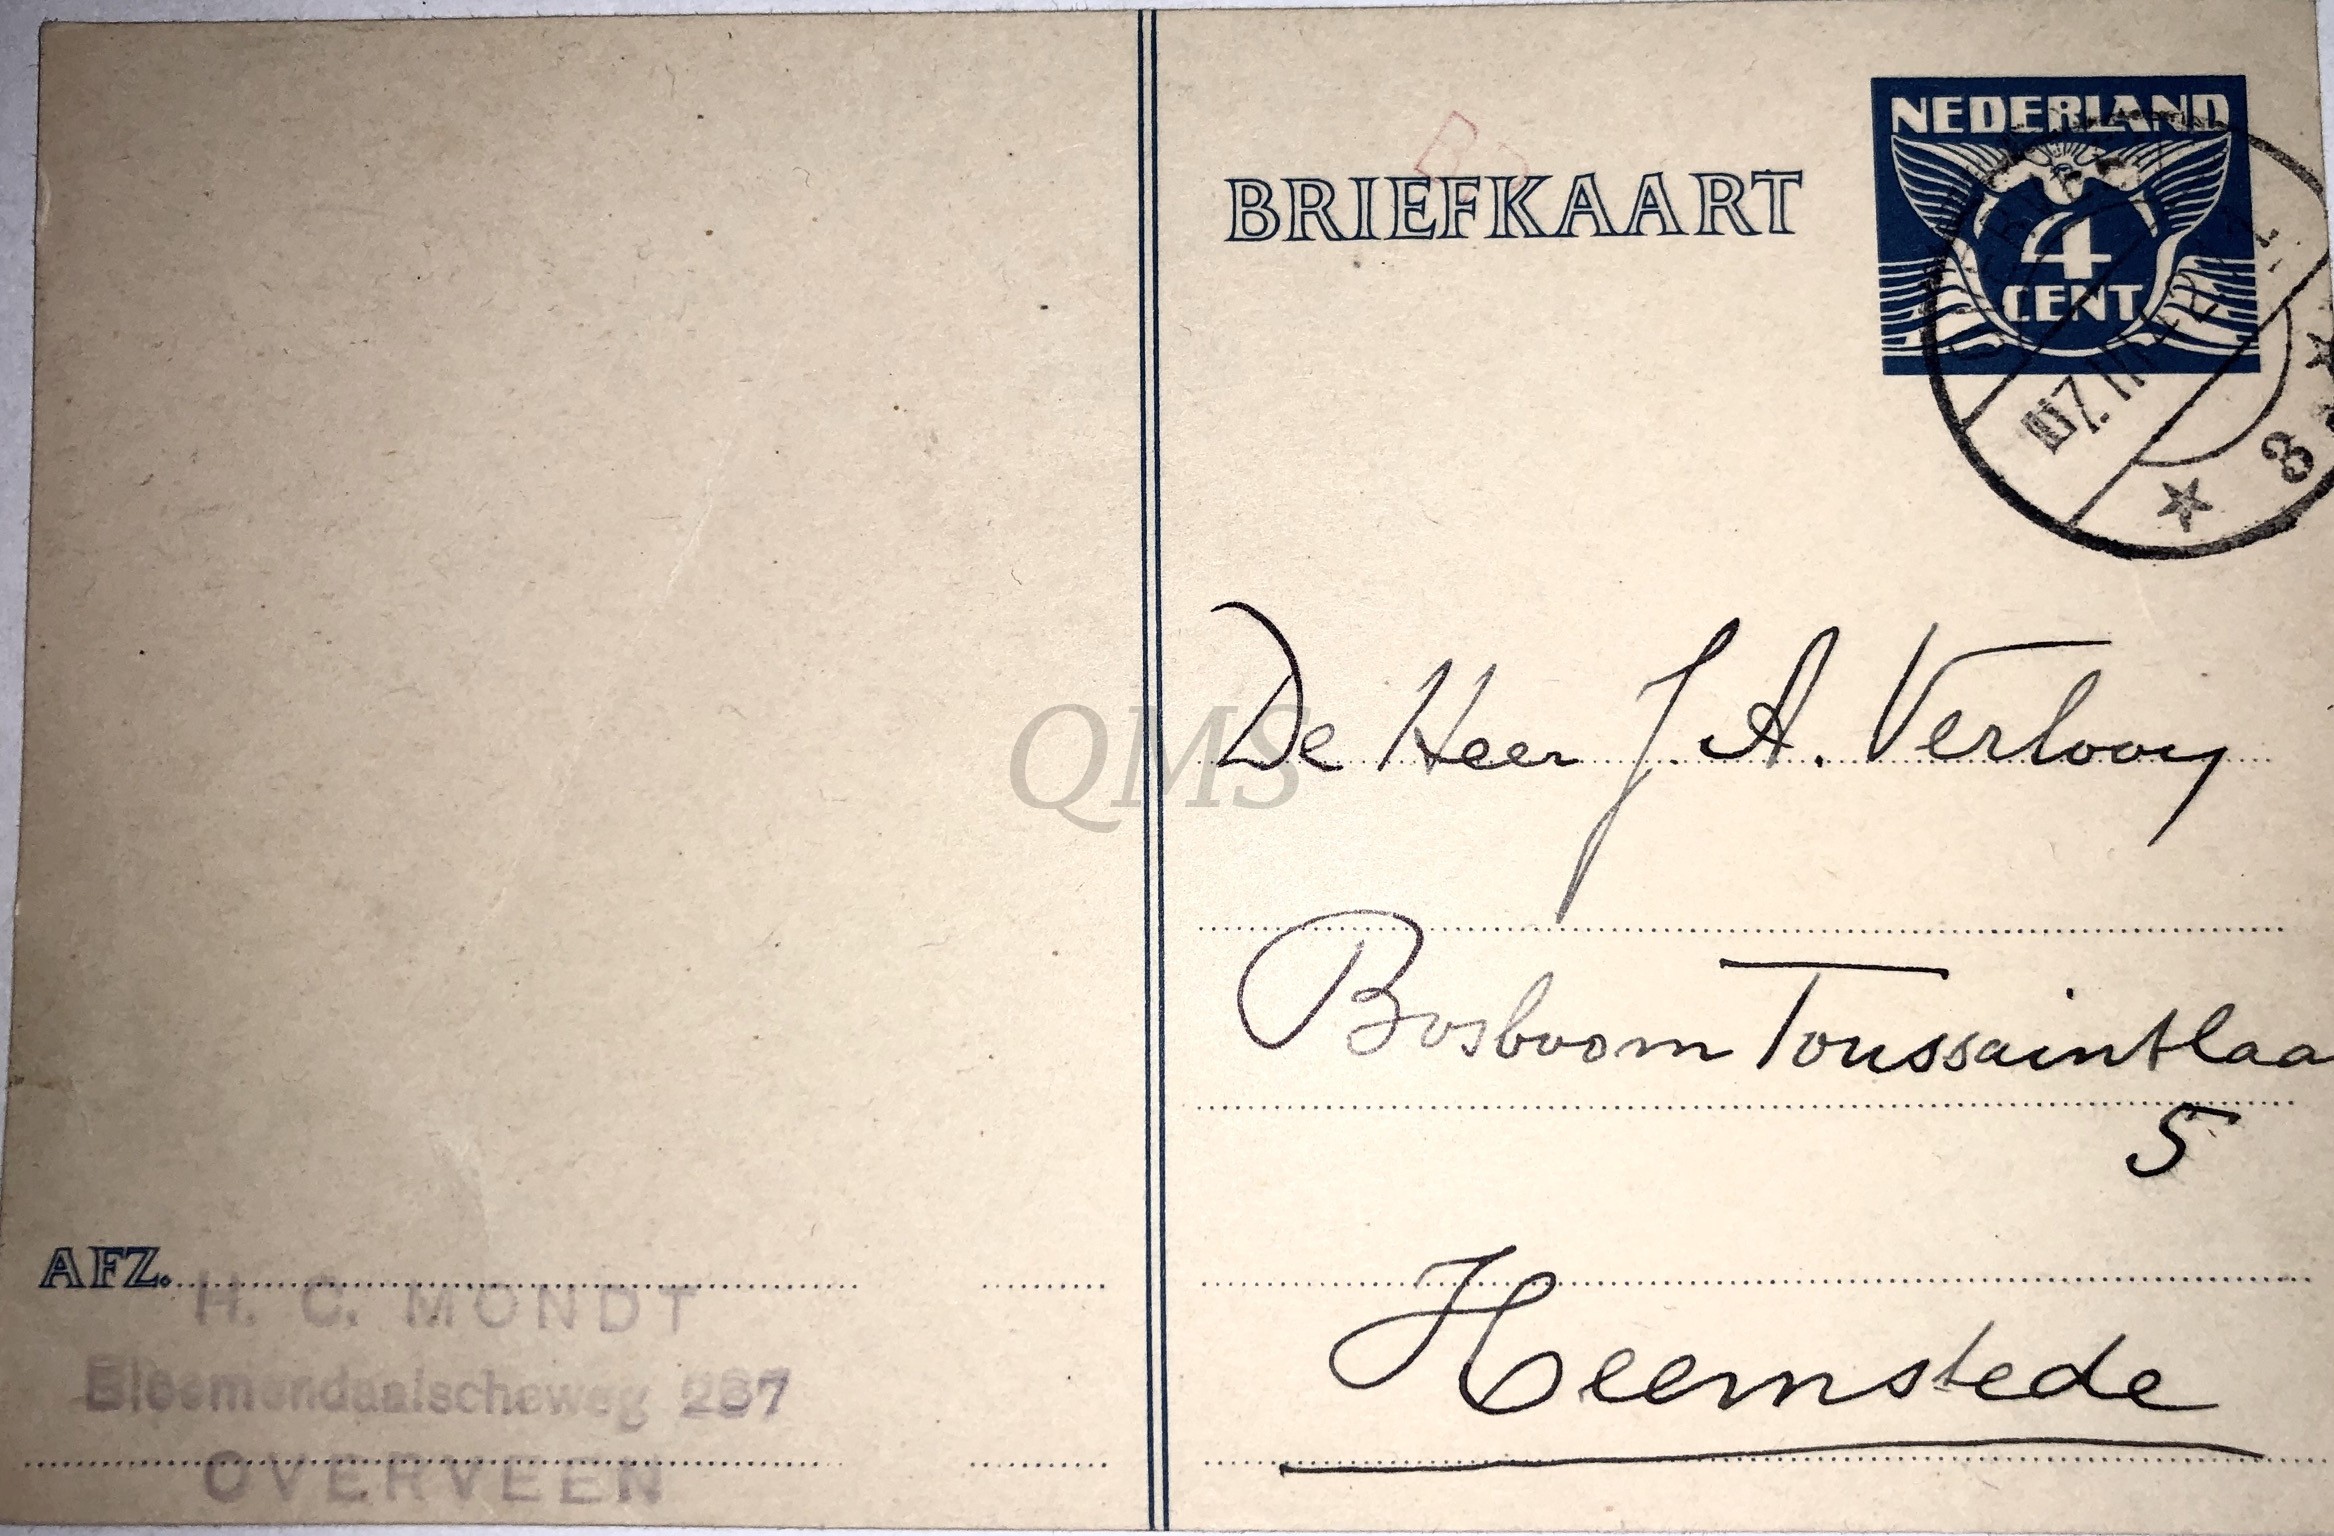 NEDERLAND
4
CENT
BRIEFKAART
3
De Heer J. A. Verlooy
QMS
Bosboom Toussaintlaa
5
Heemstede
AFZ.
H. C. MONDT
Bloemendaalscheweg 267
OVERVEEN